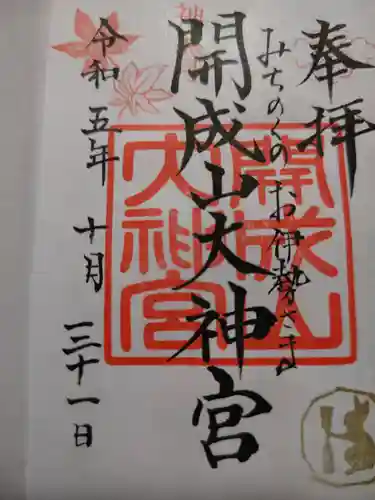 奉拝
みちのくのお伊勢さま
開成山大神宮
令和五年十月三十一日
開成山大神宮